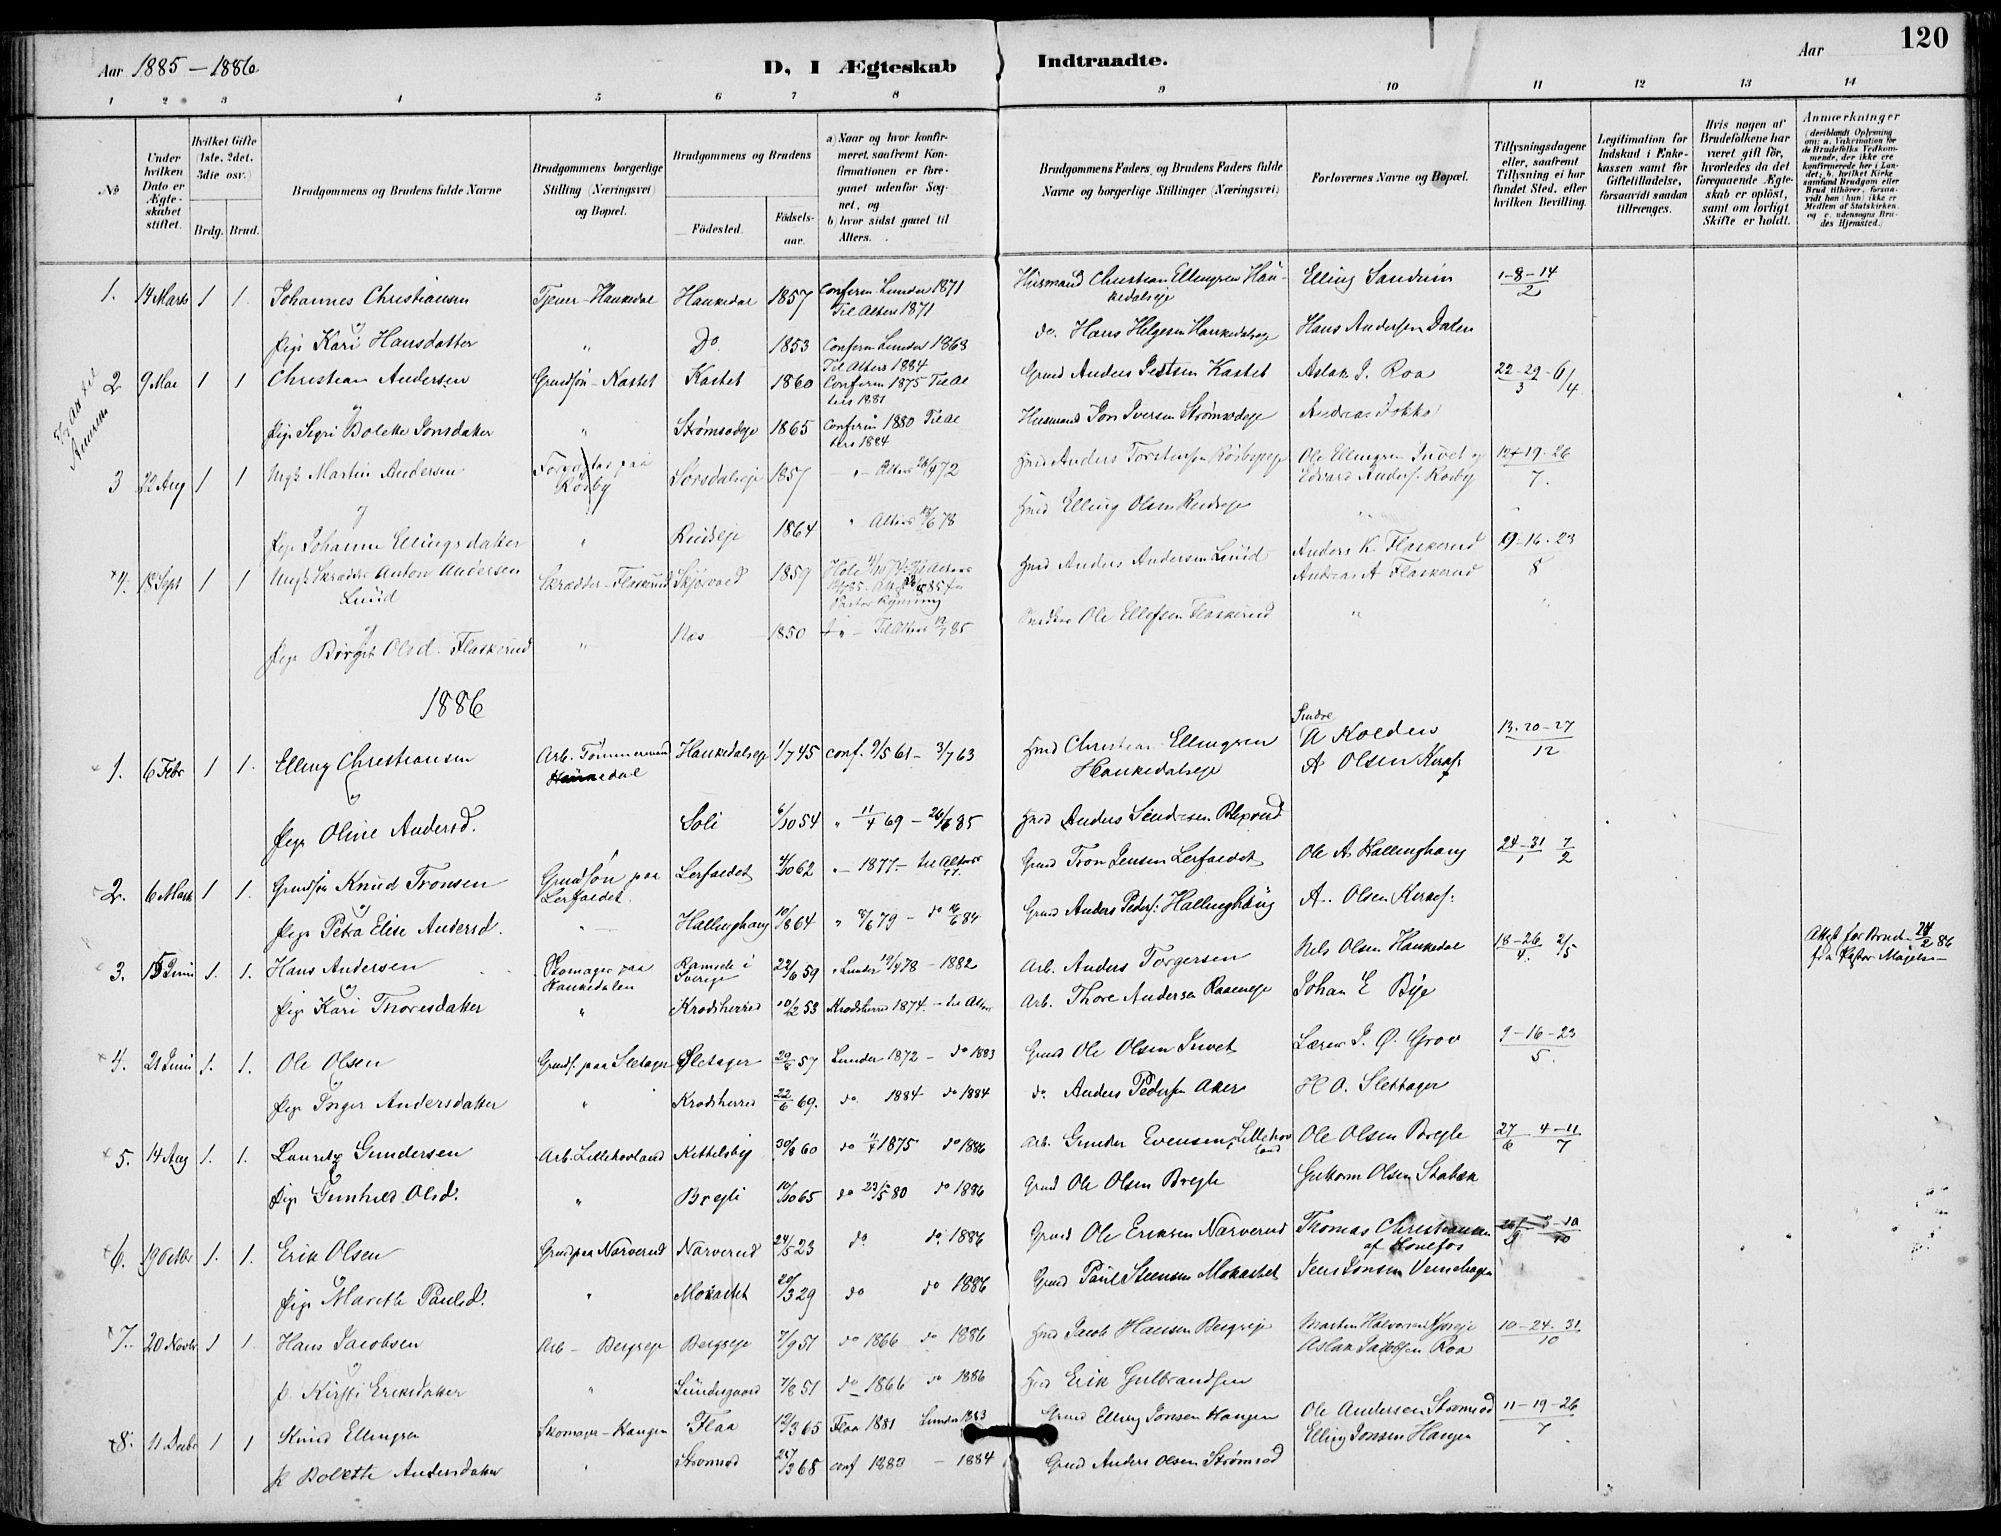 120
Aar 1885 – 1886
D, I Ægteskab Indtraadte.
Aar
1 2 3 4 5 6 7 8 9 10 11 12 13 14
No
Under hvilken Dato er Ægteskabet stiftet.
Hvilket Gifte (1ste, 2det, 3die osv.)
Brdg. Brud.
Brudgommens og Brudens fulde Navne
Brudgommens borgerlige Stilling (Næringsvei) og Bopæl.
Brudgommens og Brudens
Fødested.
Fødselsaar.
a) Naar og hvor konfirmeret, saafremt Konfirmationen er foregaaet udenfor Sognet, og
b) hvor sidst gaaet til Alters.
Brudgommens Faders og Brudens Faders fulde Navne og borgerlige Stillinger (Næringsvei)
Forlovernes Navne og Bopæl.
Tillysningsdagene eller, saafremt Tillysning ei har fundet Sted, efter hvilken Bevilling.
Legitimation for Indskud i Enkekassen samt for Giftetilladelse, forsaavidt saadan tiltrænges.
Hvis nogen af Brudefolkene har været gift før, hvorledes da det foregaaende Ægteskab er opløst, samt om lovligt Skifte er holdt.
Anmærkninger
(deriblandt Oplysning om: a. Vakcination for de Brudefolks Vedkommende, der ikke ere konfirmerede her i Landet; b. hvilket Kirkesamfund Brudgom eller Brud tilhører, forsaavidt han (hun) ikke er Medlem af Statskirken, og c. udensogns Brudes Hjemsted.)
1. 14 Marts 1 1. Johannes Christiansen Tjener – Haukedal Haukedal 1857 Conferm Lunder 1871 Til Alters 1871 Husmand Christian Ellingsen Haukedalseje Elling Sandum 1–8–14/2
Pige Kari Hansdatter " Do 1853 Conferm Lunder 1868 Til Alters 1884 do. Hans Helgesen Haukedalseje Hans Andersen Dalen
2 9 Mai 1 1 Christian Andersen Grundsøn – Kastet Kastet 1860 Conferm 1875 Til Alters 1881 Grund Anders Kastet Aslak J. Roa 22–29/3 – 6/4
Pige Sigri Bolette Jonsdatter " Strømsodeje 1865 Conferm 1880 Til Alters 1884 Husmand Jon Iversen Strømsodeje Andreas Dokka
3 22 Aug 1 1 Ungk Martin Andersen paa Rosby Sorsdalseje 1857 Hmd Anders Torstensen Rosbyeje Ole Ellingsen Juvet og Edvard Anders. Rosby 12–19–26/7.
Pige Johanne Ellingsdatter " Rudseje 1864 Hmd Elling Olsen Rudseje
4. 18 Sept 1 1 Ungk Skrædder Anton Andersen Lund Skrædder – Flaskerud Skjørvold 1859 Hmd Anders Andersen Lund Anders K. Flaskerud Andreas A Flaskerud 9–16–23/8
Pige Børgit Olsd. Flaskerud " Næs 1850 Til Alters 85 Ole Ellefsen Flaskerud "
1886
1. 6 Febr 1 1. Elling Christiansen Arb. Tømmermand Haukedal Haukedalseje 1/7 45 conf. 9/5 61 – 3/7 63 Hmd Christian Ellingsen Haukedalseje A Kolden A Olsen Kirkes: 13–20–27/12
Pige Oline Andersd. Soli 6/10 54 " 11/4 69 – 85 Hmd Anders Sendresen
2. 6 Marts 1 1. Grundsøn Knud Tronsen Grundsøn paa Lerfaldet. Lerfaldet 4/10 62 " – 1877 – til Alters Grund Tron Jensen Lerfaldet Ole A. Hallinghaug 24–31/1 7/2
Pige Petra Elise Andersd. " Hallinghaug 10/8 64 " 79 – do 84 Grund Anders Peders: Hallinghaug A. Olsen Kirkes:
3. 15 Juni 1. 1. Hans Andersen Skomager paa Haukedalen Ramsele i Sverige 22/6 59 " Lunder 78 – 1882 Arb. Anders Torgersen Nels Olsen Haukedal 18–26/4 2/5 Attest for Bruden 24/2 86 fra Pastor
Pige Kari Thoresdatter " Krødsherred 10/12 53 Krødsherred 1874 – til Alters Arb. Thore Andersen Johan E Bye
4. 21 Juni 1. 1. Ole Olsen Grunds. paa Sletager Sletager 57 Lunder 1872 – do 1883 Grund Ole Olsen Juvet Lærer J. Ø. Grov 9–16–23/5.
Pige Inger Andersdatter " Krødsherred 22/6 69. do. 1884 do 1884 do. Anders Pedersen Aker H O. Slettager
5. 14 Aug 1. 1. Lauritz Gundersen Arb. Lillehovland Kittelsby 30/8 60 do 1875 do 1886 Arb. Gunder Evensen, Lillehovland Ole Olsen Bregle 27/6 4–11/7
Pige Gunhild Olsd. " Bregli 10/10 65 do 80 do 1886 Grund Ole Olsen Bregle Guttorm Olsen Stabæk
6. 19 Octbr 1. 1. Erik Olsen Grund paa Narverud Narverud 24/5 23 do. do. 1886 Grund Ole Eriksen Narverud Thomas Christiansen af Hønefos 26/9 3–10/10
Pige Marethe Paulsd. " Mokastet 20/3 29 do do 1886 Grund Paul Steensen Mokastet Jens Jonsen
7. 20 Novbr 1 1. Hans Jacobsen Arb – Bergseje Bergseje 7/9 51 do 1866 do 1886 Hmd Jacob Hansen Bergseje Morten Halvorsen Aslak Jacobsen Roa 10–24–31/10
P. Kirsti Eriksdatter " Lundesgaard 7/8 51 do 1866 do 1886 Hmd Erik Gulbrandsen
8. 11 Decbr 1 1 Knud Ellingsen Skomager – Haugen Flaa 12/3 65 Flaa 1881 Lunder 1883 Grund Elling Jonsen Haugen Ole Andersen Strømsod Elling Jonsen Haugen 11–19–26/7
P. Bolette Andersdatter " Strømsod 27/3 68 conf 1883 – 1884 Grund Anders Olsen Strømsod